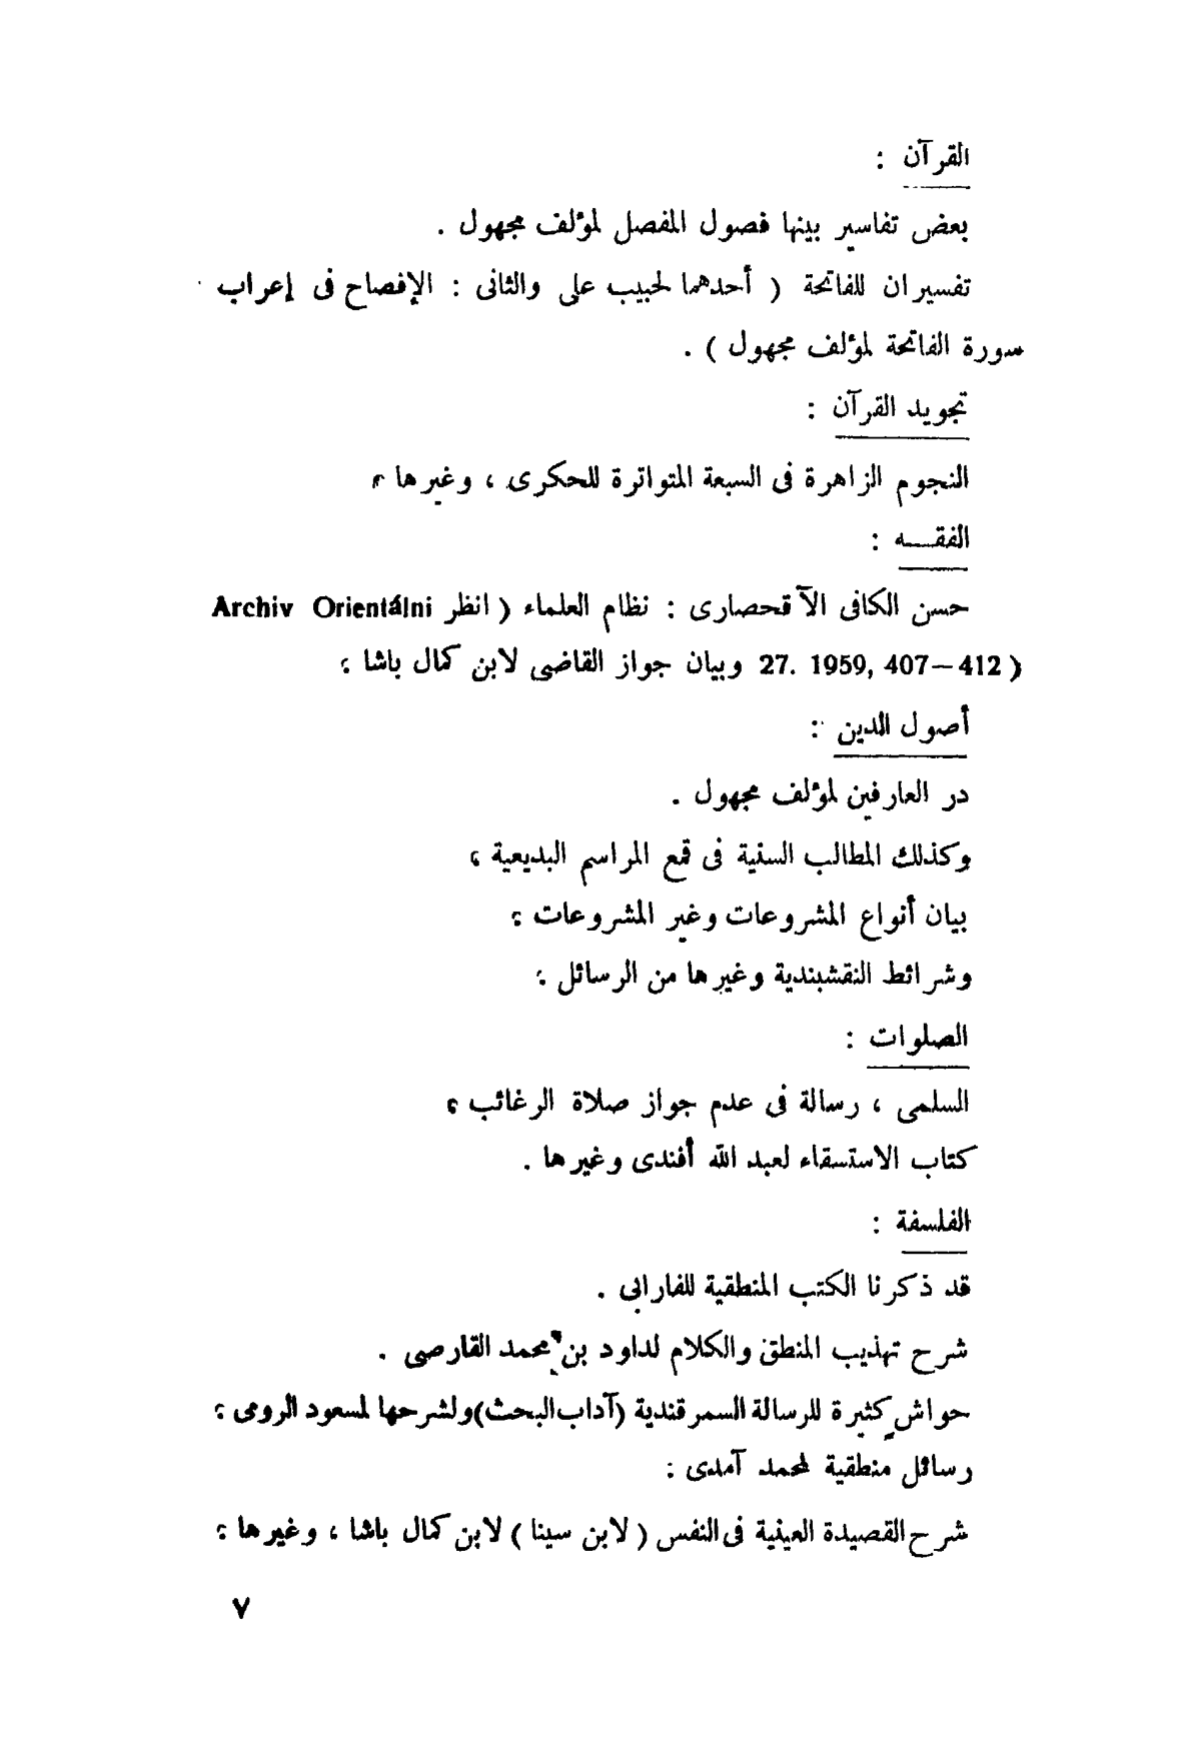 القرآن :
بعض تفاسير بينها فصول المفصل لمؤلف مجهول .
تفسيران للفاتحة ( أحدهما لحبيب على والثانى : الإفصاح فى إعراب
سورة الفاتحة لمؤلف مجهول ) .
تجويد القرآن :
النجوم الزاهرة فى السبعة المتواترة للحكرى ، وغيرها ؛
الفقـــه :
حسن الكافى الآقحصارى : نظام العلماء ( انظر Archiv Orientálni
27. 1959, 407—412 ) وبيان جواز القاضى لابن كمال باشا ؛
أصول الدين :
در العارفين لمؤلف مجهول .
وكذلك المطالب السنية فى قمع المراسم البديعية ؛
بيان أنواع المشروعات وغير المشروعات ؛
وشرائط النقشبندية وغيرها من الرسائل ؛
الصلوات :
السلمى ، رسالة فى عدم جواز صلاة الرغائب ؛
كتاب الاستسقاء لعبد الله أفندى وغيرها .
الفلسفة :
قد ذكرنا الكتب المنطقية للفارابى .
شرح تهذيب المنطق والكلام لداود بن محمد القارصى .
حواش كثيرة للرسالة السمرقندية (آداب البحث) ولشرحها لمسعود الرومى ؛
رسائل منطقية لمحمد آمدى :
شرح القصيدة العينية فى النفس ( لابن سينا ) لابن كمال باشا ، وغيرها ؛
٧